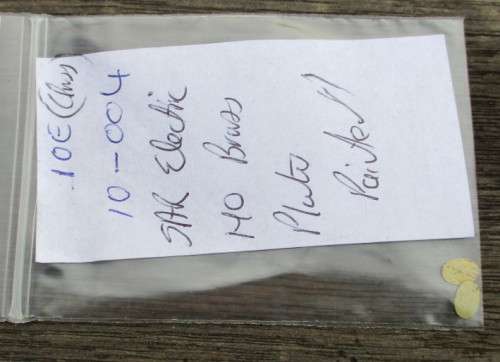 10E (Class
10-004
SAR Electric
HO Brass
Plate
Painted